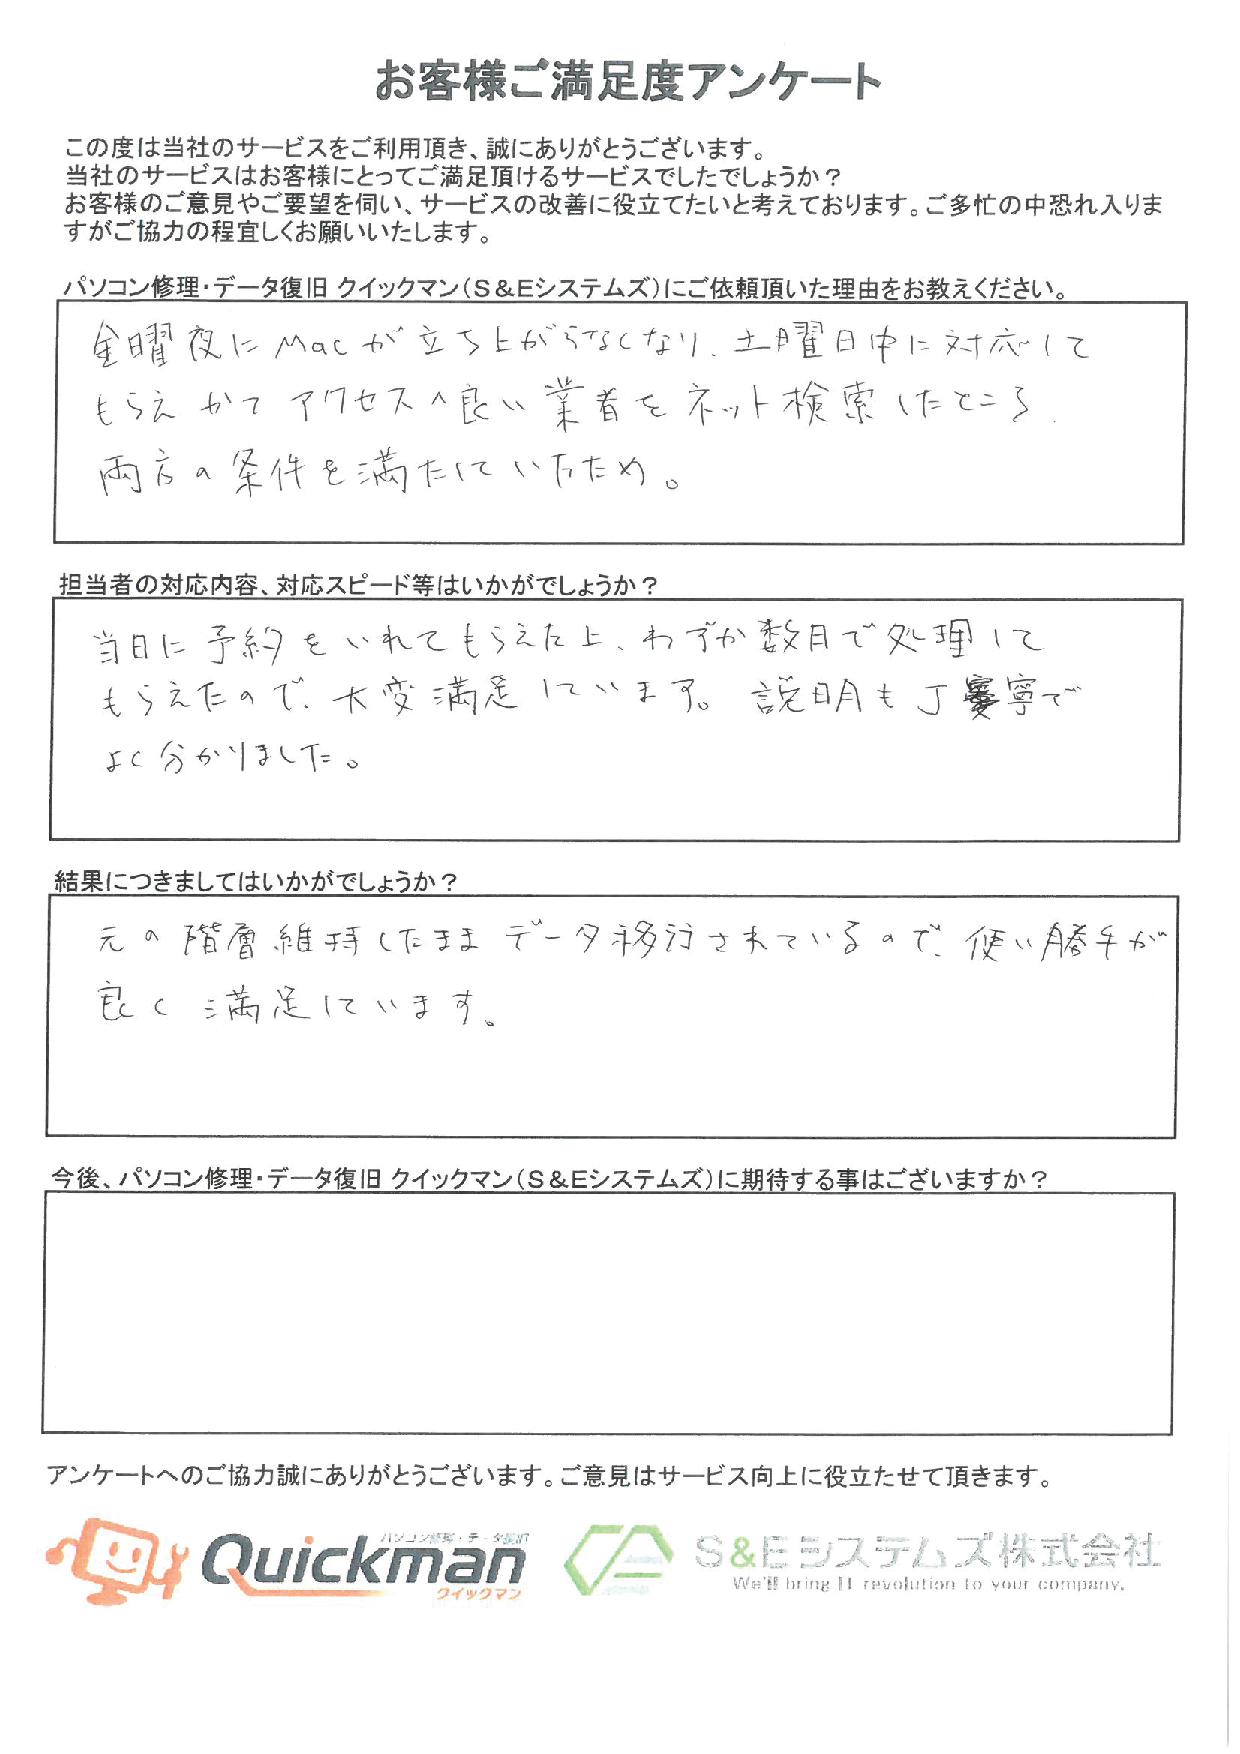 お客様ご満足度アンケート
この度は当社のサービスをご利用頂き、誠にありがとうございます。
当社のサービスはお客様にとってご満足頂けるサービスでしたでしょうか？
お客様のご意見やご要望を伺い、サービスの改善に役立てたいと考えております。ご多忙の中恐れ入りま
すがご協力の程宜しくお願いいたします。
パソコン修理・データ復旧 クイックマン（S＆Eシステムズ）にご依頼頂いた理由をお教えください。
金曜夜にMacが立ち上がらなくなり、土曜日中に対応して
もらえ かつ アクセスへ良い業者をネット検索したところ、
両方の条件を満たしていたため。
担当者の対応内容、対応スピード等はいかがでしょうか？
当日に予約をいれてもらえた上、わずか数日で処理して
もらえたので、大変満足しています。説明も丁寧で
よく分かりました。
結果につきましてはいかがでしょうか？
元の階層維持したままデータ移行されているので、使い勝手が
良く満足しています。
今後、パソコン修理・データ復旧 クイックマン（S＆Eシステムズ）に期待する事はございますか？
アンケートへのご協力誠にありがとうございます。ご意見はサービス向上に役立たせて頂きます。
パソコン修理・データ復旧
Quickman
クイックマン
S&Eシステムズ株式会社
We'll bring IT revolution to your company.